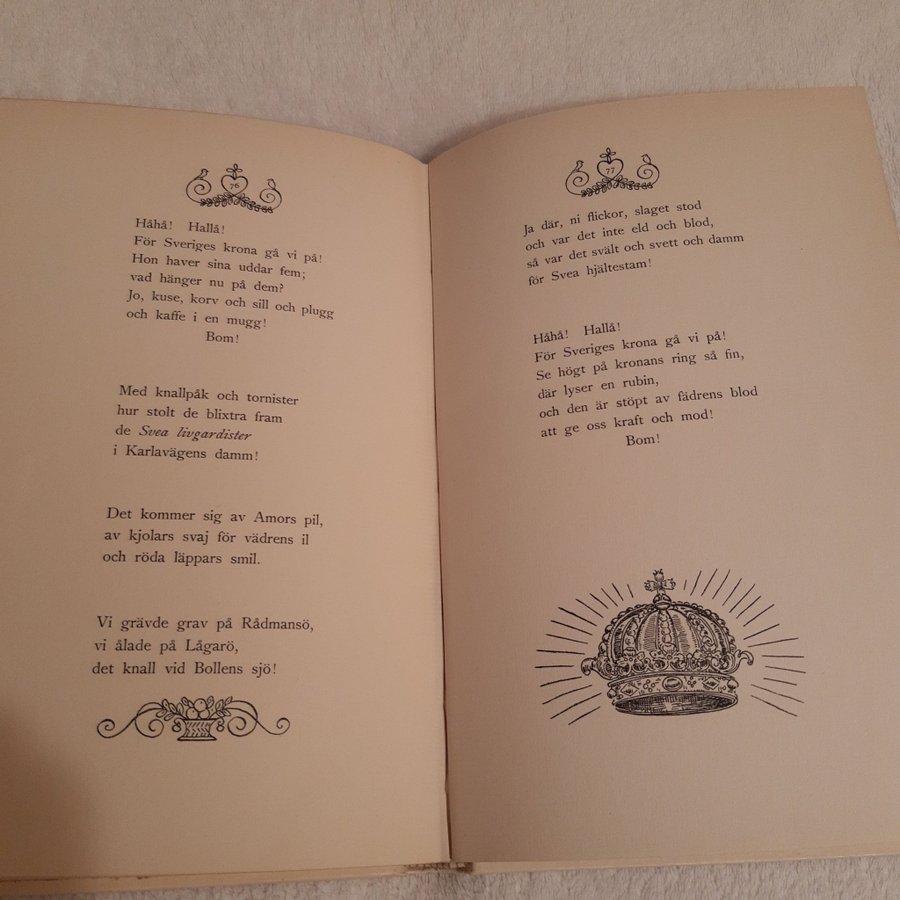 76
Håhå! Hallå!
För Sveriges krona gå vi på!
Hon haver sina uddar fem;
vad hänger nu på dem?
Jo, kuse, korv och sill och plugg
och kaffe i en mugg!
Bom!
Med knallpåk och tornister
hur stolt de blixtra fram
de Svea livgardister
i Karlavägens damm!
Det kommer sig av Amors pil,
av kjolars svaj för vädrens il
och röda läppars smil.
Vi grävde grav på Rådmansö,
vi ålade på Lågarö,
det knall vid Bollens sjö!
77
Ja där, ni flickor, slaget stod
och var det inte eld och blod,
så var det svält och svett och damm
för Svea hjältestam!
Håhå! Hallå!
För Sveriges krona gå vi på!
Se högt på kronans ring så fin,
där lyser en rubin,
och den är stöpt av fädrens blod
att ge oss kraft och mod!
Bom!